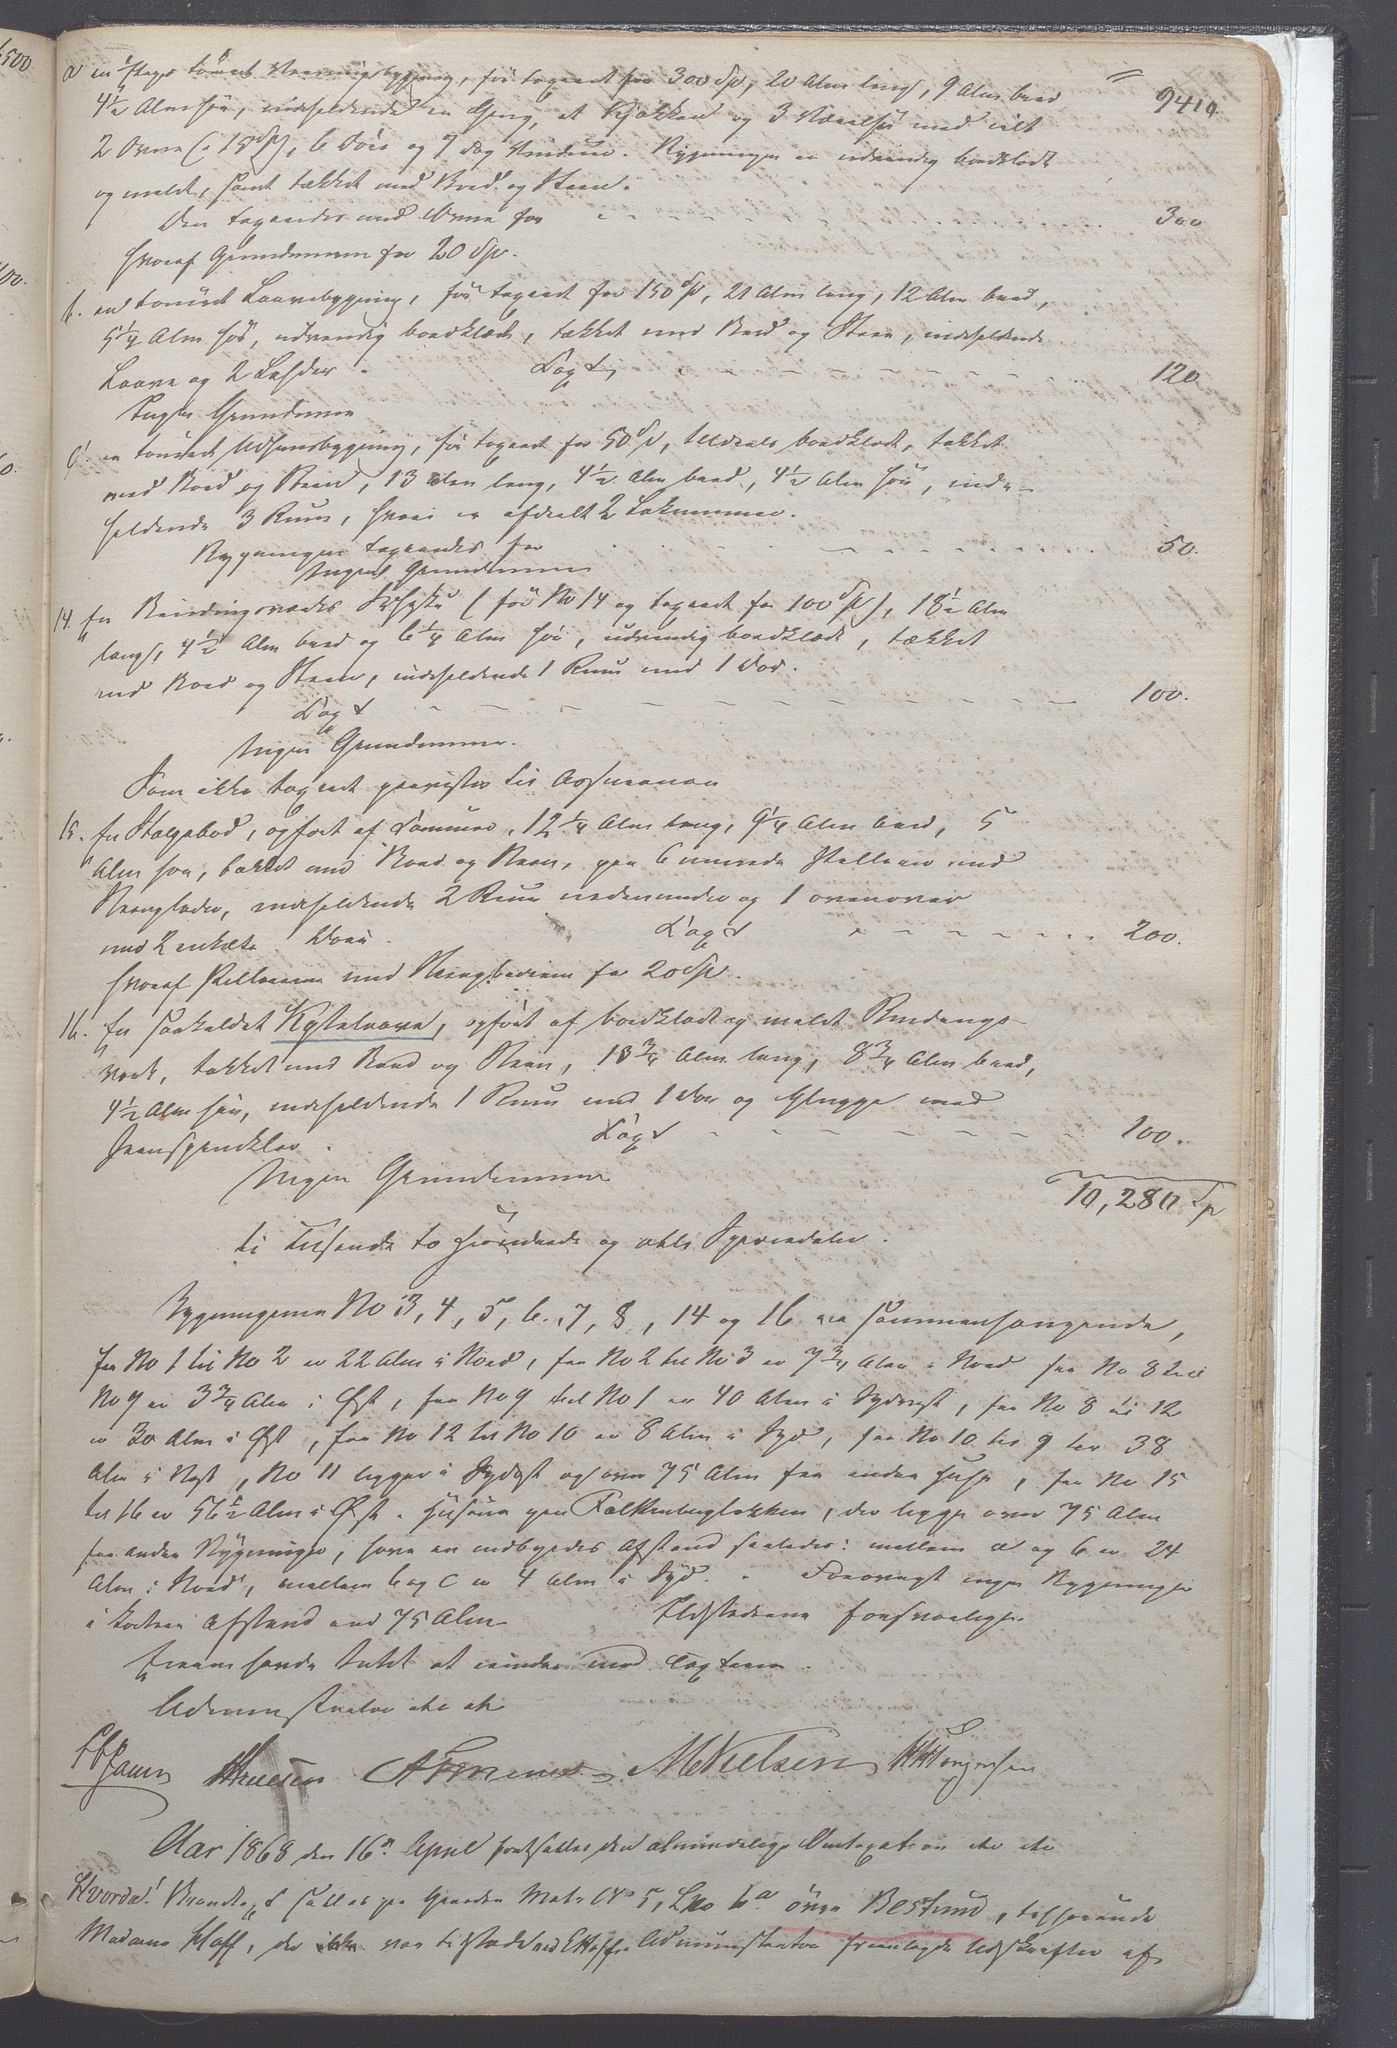 500.
9410.
a en Etages tømret Vaaningsbygning, før taxeret for 300 Sp, 20 Alen lang, 9 Alen bred
4½ Alen høi, indeholdende en Gang, et Kjøkken og 3 Værelser med ialt
2 Ovne (a 15 Sp), 6 Døre og 7 fag Vinduer. Bygningen er udvendig bordklædt
og malet, samt tækket med Bord og Steen.
Den taxeredes med Ovne for 300
hvoraf Grundmuren for 20 Sp.
b. en tømret Laavebygning, før taxeret for 150 Sp, 21 Alen lang, 12 Alen bred,
5¼ Alen høi, udvendig bordklædt, tækket med Bord og Steen, indeholdende
Laave og 2 Lehder. Taxt 120
Ingen Grundmur
c. en tømret Udhuusbygning, før taxeret for 50 Sp, tildeels bordklædt, tækket
med Bord og Steen, 13 Alen lang, 4½ Alen bred, 4½ Alen høi, inde-
holdende 3 Rum, hvori er afdeelt 2 Lokummer.
Bygningen taxeredes for 50.
Ingen Grundmur
14. En Bindingsværks (før No 14 og taxeret for 100 Sp), 18½ Alen
lang, 4½ Alen bred og 6¼ Alen høi, udvendig bordklædt, tækket
med Bord og Steen, indeholdende 1 Rum med 1 Dør.
Taxt 100.
Ingen Grundmur.
Som ikke taxeret til Assurance
15. En Stolpebod, opført af Tømmer, 12¼ Alen lang, 9¼ Alen bred, 5
Alen høi, tækket med Bord og Steen, paa 6 murede Piller med
indeholdende 2 Rum nedenunder og 1 ovenover
med 2 enkelte Døre. Taxt 200.
hvoraf Pillerne med for 20 Sp.
16. En saakaldet Rystelaave, opført af bordklædt og malet Bindings-
værk, tækket med Bord og Steen, 13¾ Alen lang, 8¾ Alen bred,
4½ Alen høi, indeholdende 1 Rum med 1 Dør og Glugge med
Taxt 100.
Ingen Grundmur
10,280 Sp
ti Tusende to Hundrede og otti Speciedaler.
Bygningerne No 3, 4, 5, 6, 7, 8, 14 og 16 ere sammenhængende,
fra No 1 til No 2 er 22 Alen i Nord, fra No 2 til No 3 er 7¾ Alen i Nord fra No 8 til
No 9 er 3¾ Alen i Øst, fra No 9 til No 1 er 40 Alen i Sydvest, fra No 8 til 12
er 30 Alen i Øst, fra No 12 til No 10 er 8 Alen i Syd, fra No 10 til 9 er 38
Alen i Vest, No 11 ligger i Sydøst og over 75 Alen fra andre Huse, fra No 15
til 16 er 56½ Alen i Øst. Husene paa Falkenbergløkken, der ligge over 75 Alen
fra andre Bygninger, have en indbyrdes Afstand saaledes: mellem a og b er 24
Alen i Nord, mellem b og c er 4 Alen i Syd. Forøvrigt ingen Bygninger
i kortere Afstand end 75 Alen. Ildstederne forsvarlige.
Eieren havde Intet at erindre mod Taxten.
Administrator etc etc
M Nielsen
Aar 1868 den 16de April fortsattes den almindelige Omtaxation etc etc
Hvorda! Brandtaxt holdtes paa Gaarden Matr No 5, Lno 6a övre Bestum, tilhørende
Madame Hoff, der ikke var tilstede. Administrator fremlagde Udskrifter af